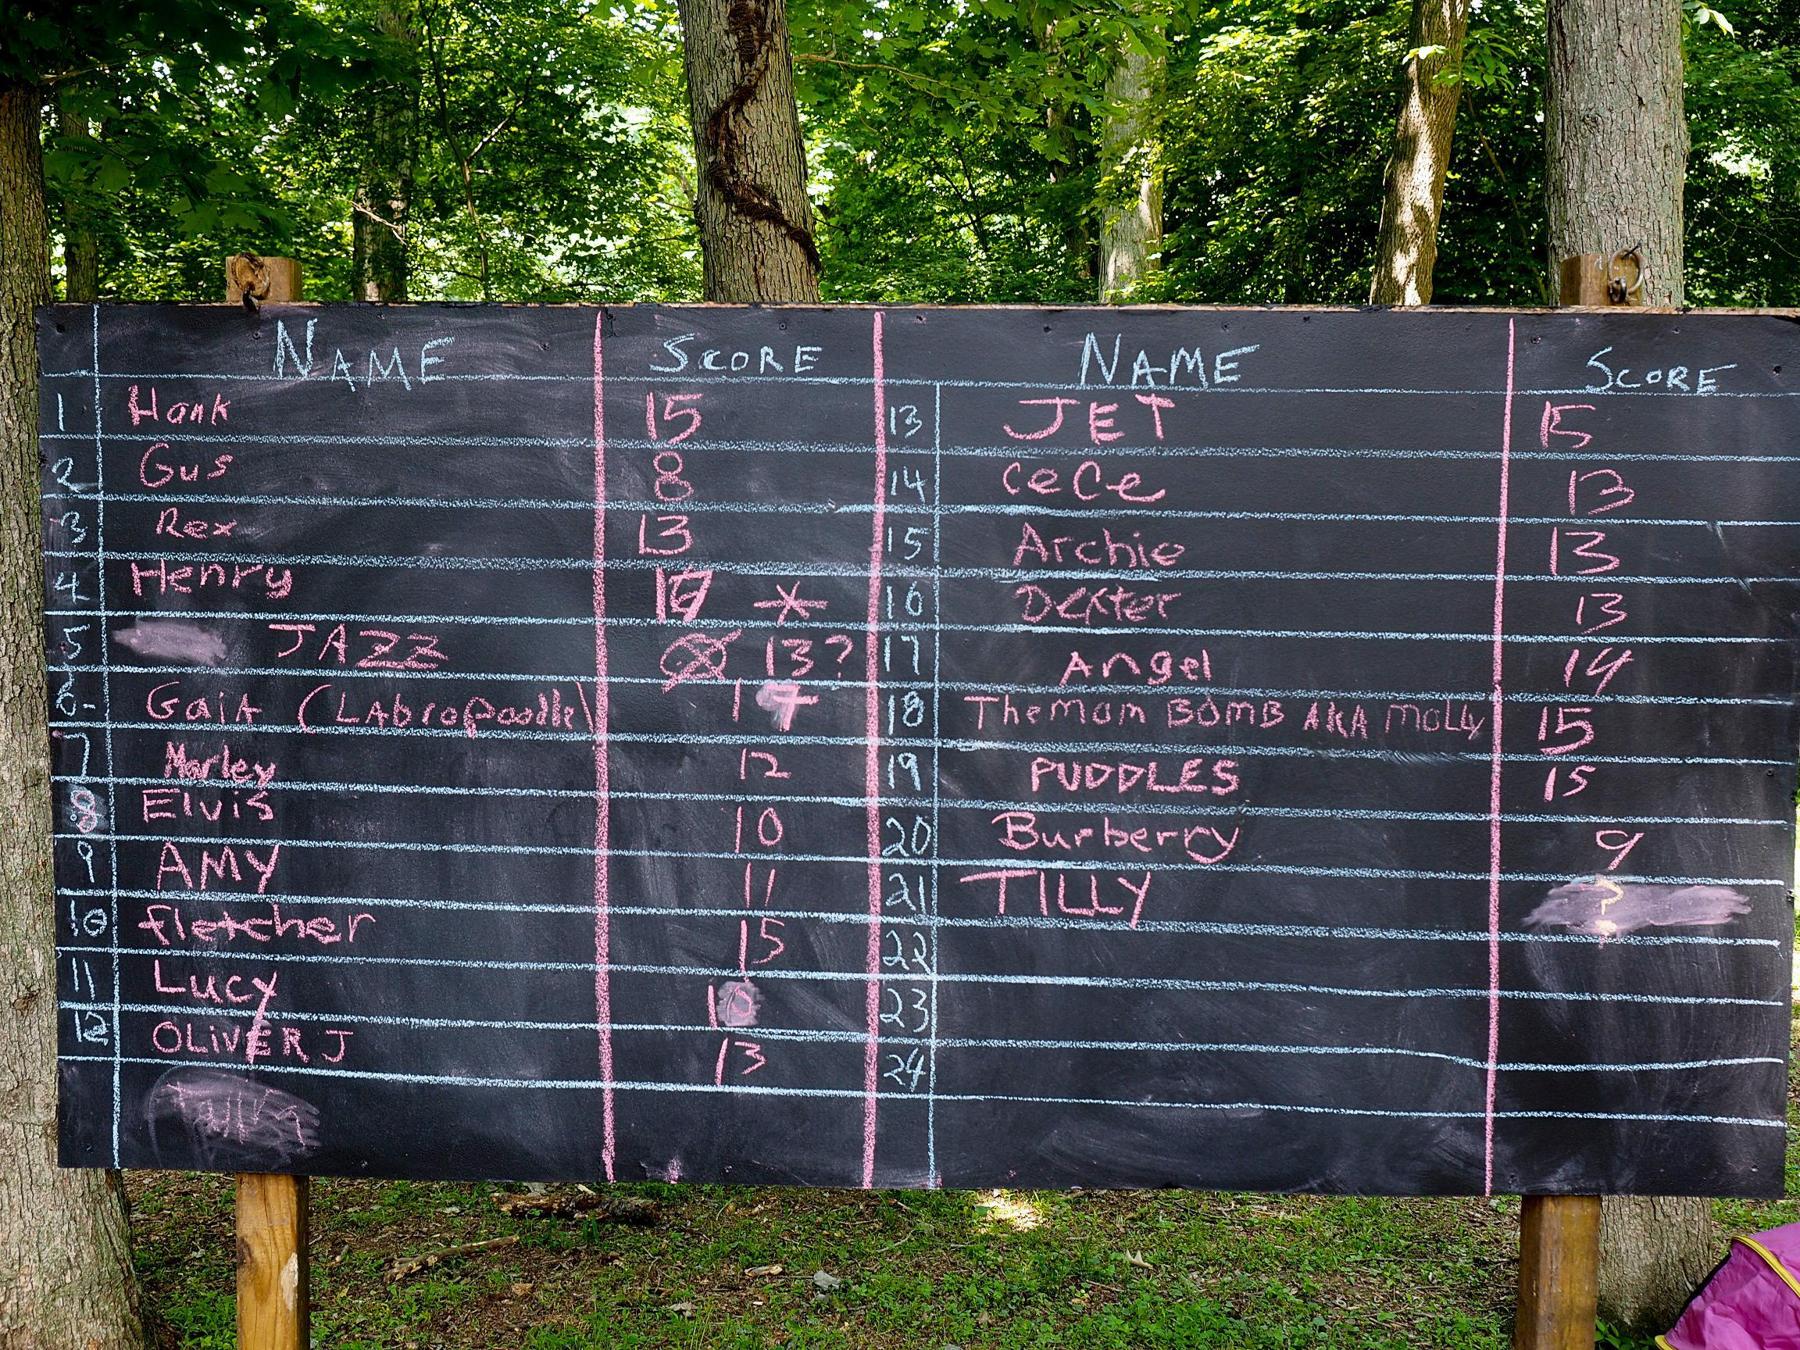 NAME SCORE NAME SCORE
1 Hank 15 13 JET 15
2 Gus 8 14 CeCe 13
3 Rex 13 15 Archie 13
4 Henry * 16 Dexter 13
5 JAZZ 13? 17 Angel 14
6 GaiA (LAbropoodle) 17 18 The mom BOMB AKA MOLLy 15
7 Marley 12 19 PUDDLES 15
8 Elvis 10 20 Burberry 9
9 AMY 11 21 TILLY ?
10 fletcher 15 22
11 Lucy 10 23
12 OLiVER J 13 24